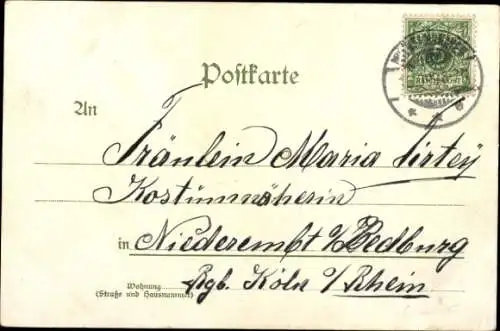 Postkarte
An
Fräulein Maria Tirtey
Kostümnäherin
in Niederembt b/Bedburg
Wohnung
(Straße und Hausnummer)
Rgb. Köln a/Rhein